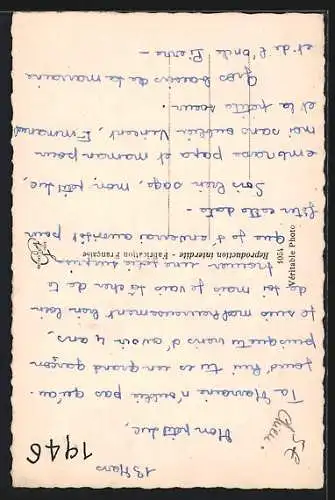 13 Mars
Mon petit Luc,
Ta Marraine n'oublie pas qu'au-
jourd'hui tu es un grand garçon
puisque tu viens d'avoir 4 ans,
je suis malheureusement bien loin
de toi mais je vais tâcher de te
procurer une petite surprise
que je t'enverrai aussitôt pour
fêter cette date -
Sois bien sage, mon petit Luc,
embrasse papa et maman pour
moi sans oublier Vincent, Emmanuel
et la petite sœur.
Gros baisers de ta marraine
et de l'oncle Pierre -
1946
5 €
Reproduction interdite - Fabrication Française
1054
Véritable Photo